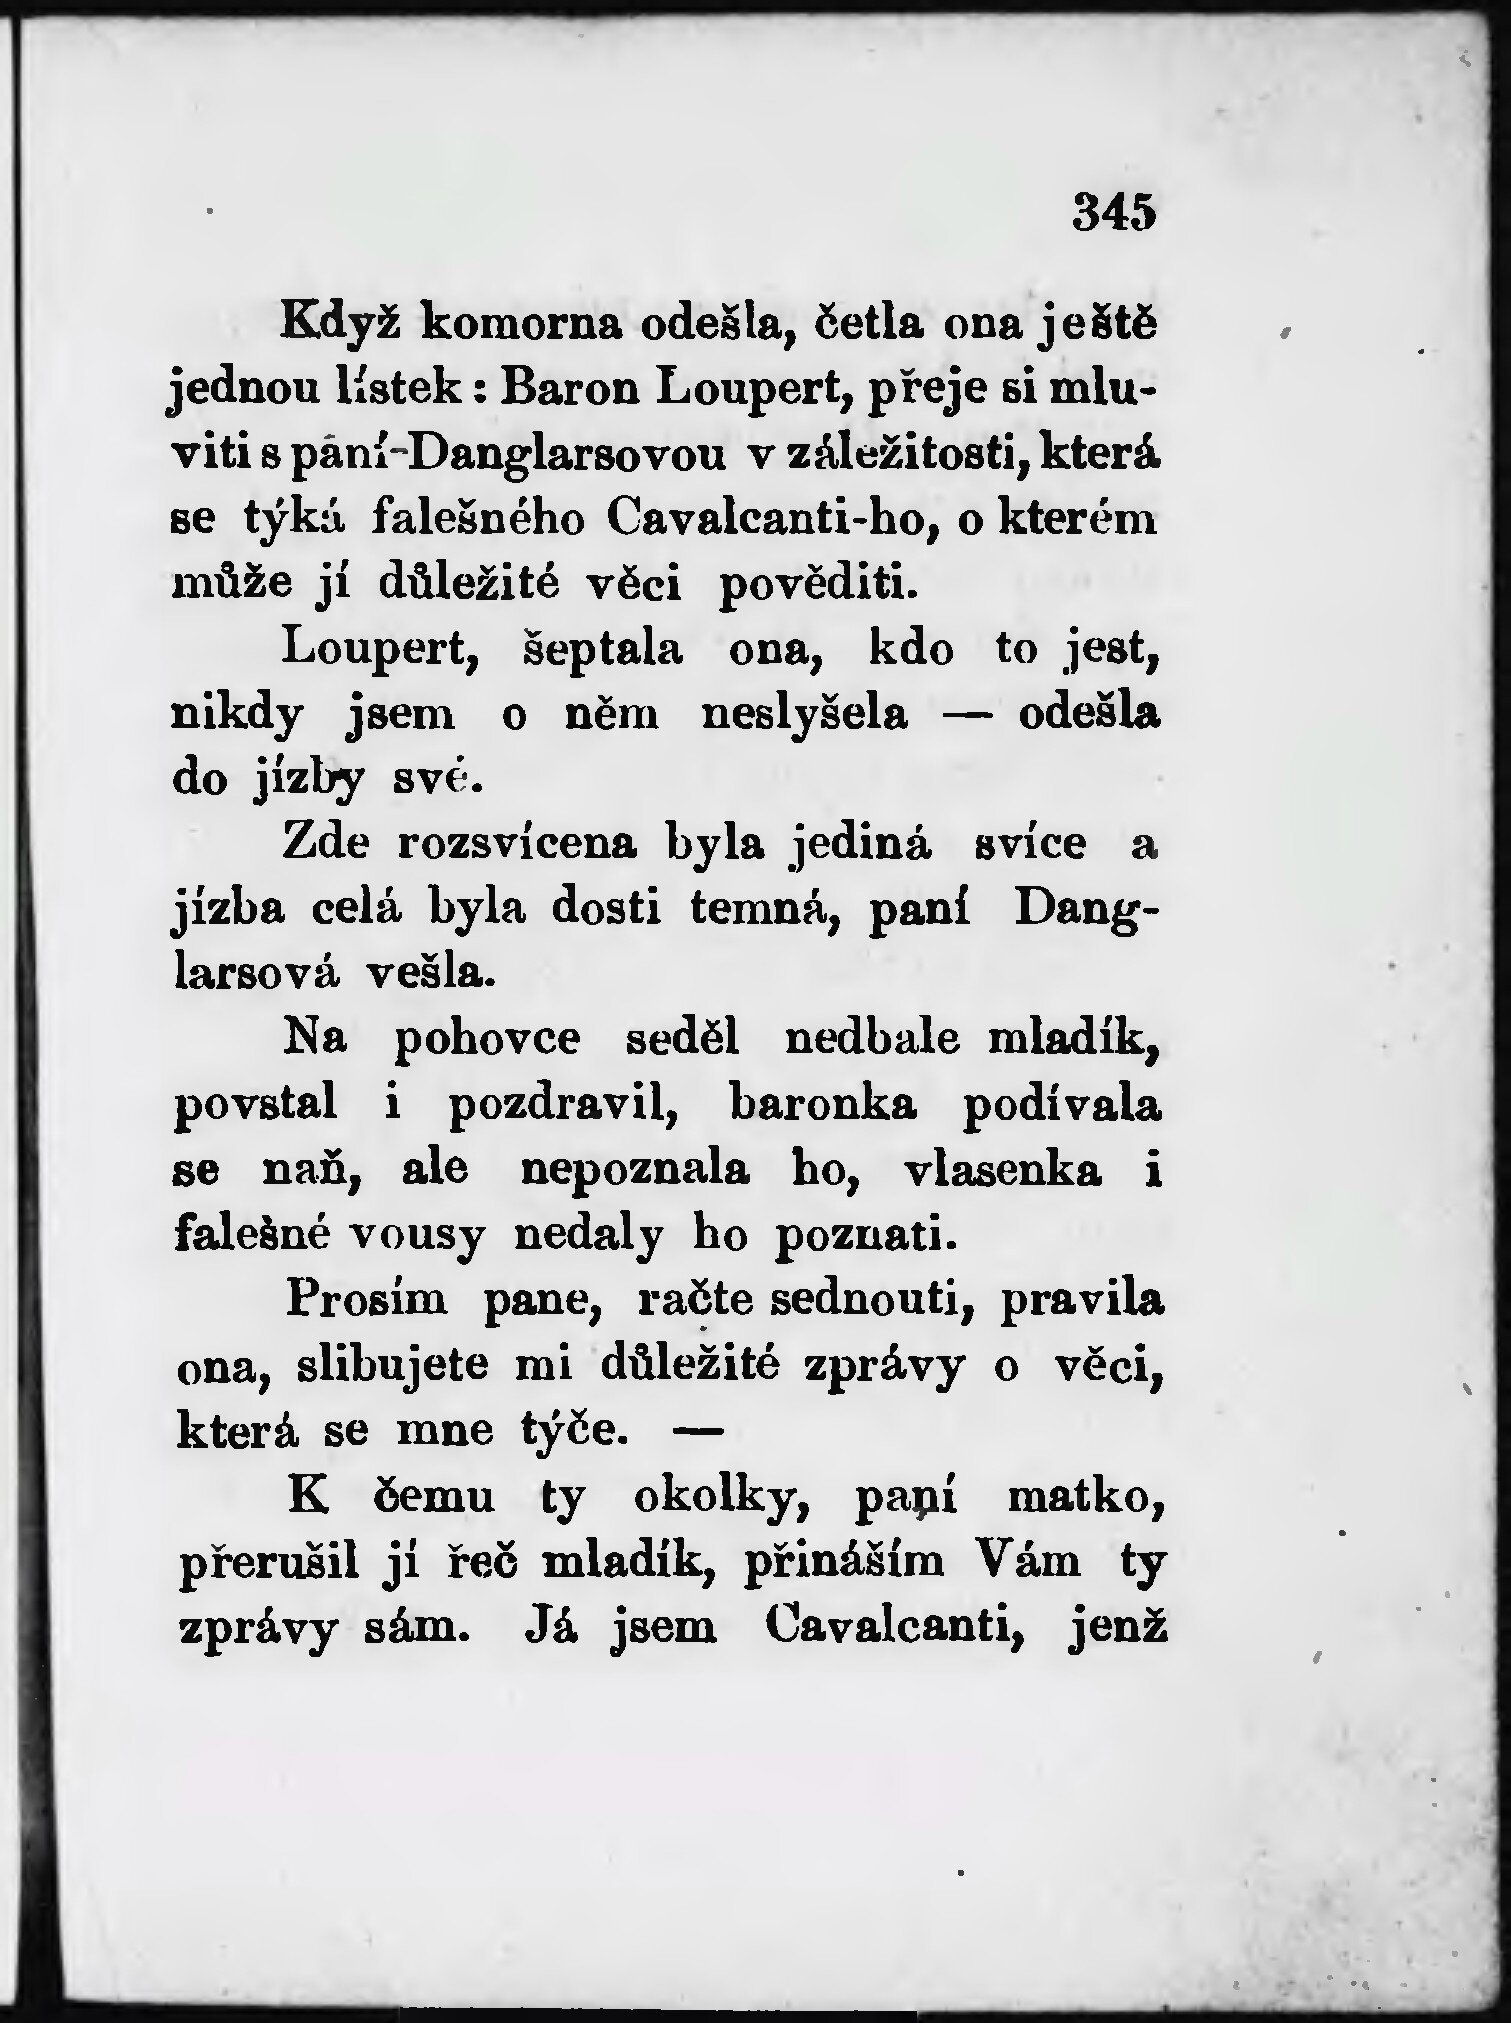 345
Když komorna odešla, četla ona ještě
jednou lístek : Baron Loupert, přeje si mlu-
viti s paní-Danglarsovou v záležitosti, která
se týká falešného Cavalcanti-ho, o kterém
může jí důležité věci pověditi.
Loupert, šeptala ona, kdo to jest,
nikdy jsem o něm neslyšela — odešla
do jízby své.
Zde rozsvícena byla jediná svíce a
jízba celá byla dosti temná, paní Dang-
larsová vešla.
Na pohovce seděl nedbale mladík,
povstal i pozdravil, baronka podívala
se naň, ale nepoznala ho, vlasenka i
falešné vousy nedaly ho poznati.
Prosím pane, račte sednouti, pravila
ona, slibujete mi důležité zprávy o věci,
která se mne týče. —
K čemu ty okolky, paní matko,
přerušil jí řeč mladík, přináším Vám ty
zprávy sám. Já jsem Cavalcanti, jenž